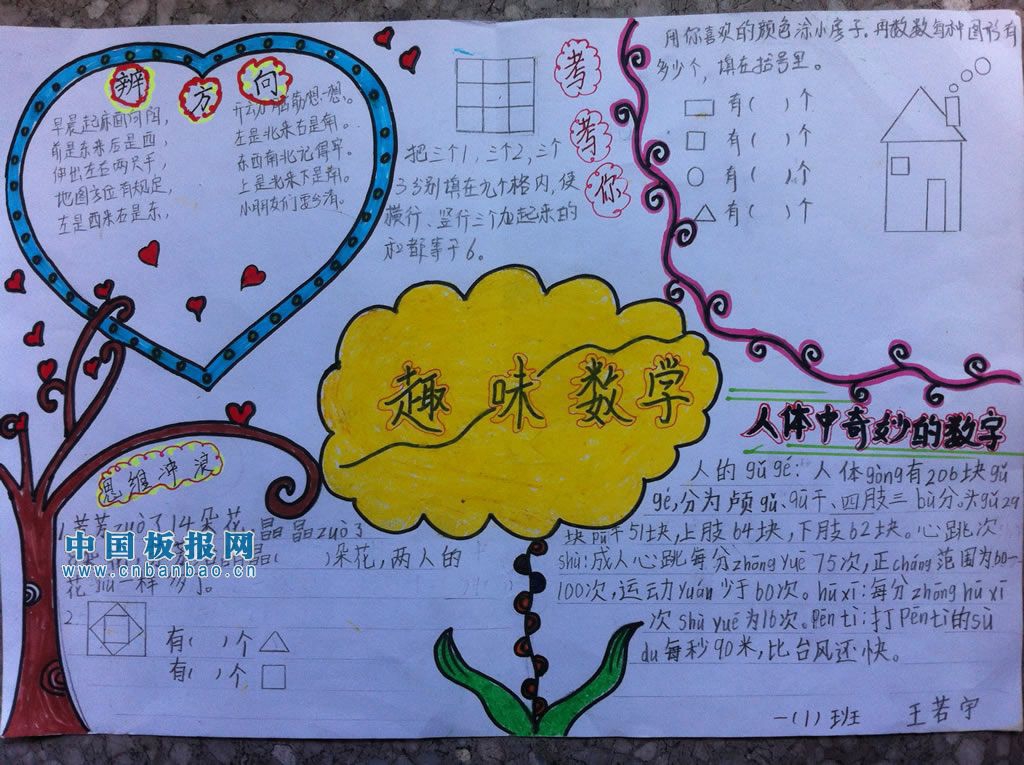 辨方向
早晨起床面向阳，
前是东来后是西，
伸出左右两只手，
地图方位有规定，
左是西来右是东，
开动脑筋想一想。
左是北来右是南。
东西南北记得牢。
上是北来下是南。
小朋友们要分清。
考考你
把三个1，三个2，三个
3分别填在九个格内，使
横行、竖行三个加起来的
和都等于6。
用你喜欢的颜色涂小房子.再数数每种图形有
多少个，填在括号里。
有（ ）个
有（ ）个
有（ ）个
有（ ）个
趣味数学
思维冲浪
1.芳芳zuò了14朵花，晶晶zuò了
）朵花，两人的
花jiù一样多了。
2.
有（ ）个
有（ ）个
人体中奇妙的数字
人的gǔ gé：人体gòng有206块gǔ
gé，分为颅gǔ、qū干、四肢三bù分。头gǔ29
块qū干51块，上肢64块，下肢62块。心跳次
shù：成人心跳每分zhōng yuē 75次，正cháng范围为60—
100次，运动yuán少于60次。hū xī：每分zhōng hū xī
次shù yuē为16次。Pēn tì：打Pēn tì的sù
du每秒90米，比台风还快。
一（1）班 王若宇
中国板报网
www.cnbanbao.cn